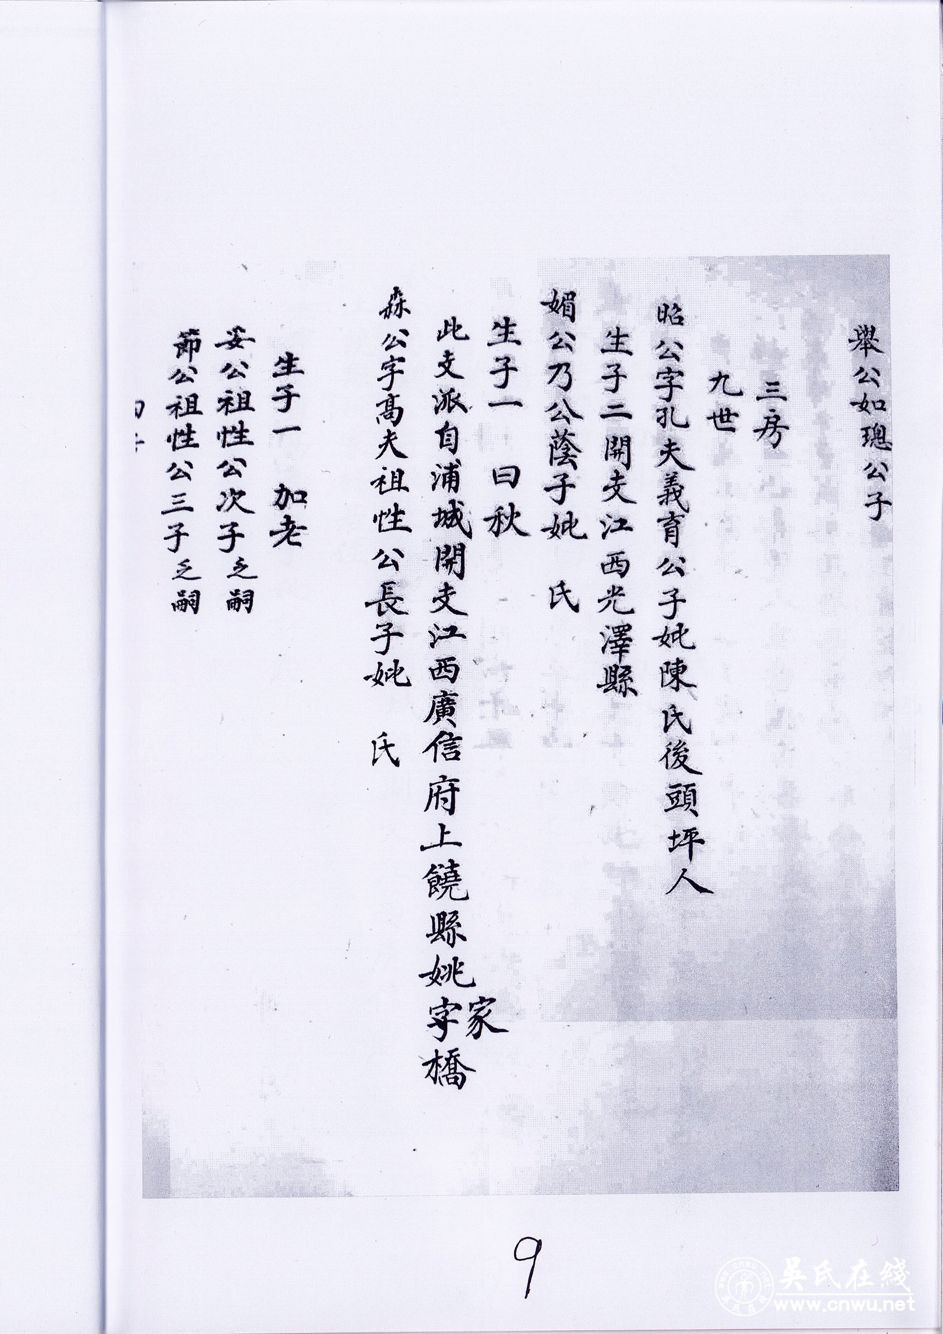 舉公如璁公子
三房
九世
昭公字孔夫義育公子妣陳氏後頭坪人
生子二開支江西光澤縣
媚公乃公蔭子妣 氏
生子一 曰秋
此支派自浦城開支江西廣信府上饒縣姚字橋
家
森公字高夫祖性公長子妣 氏
生子一 加老
妥公祖性公次子乏嗣
節公祖性公三子乏嗣
9
吴氏在线
www.cnwu.net